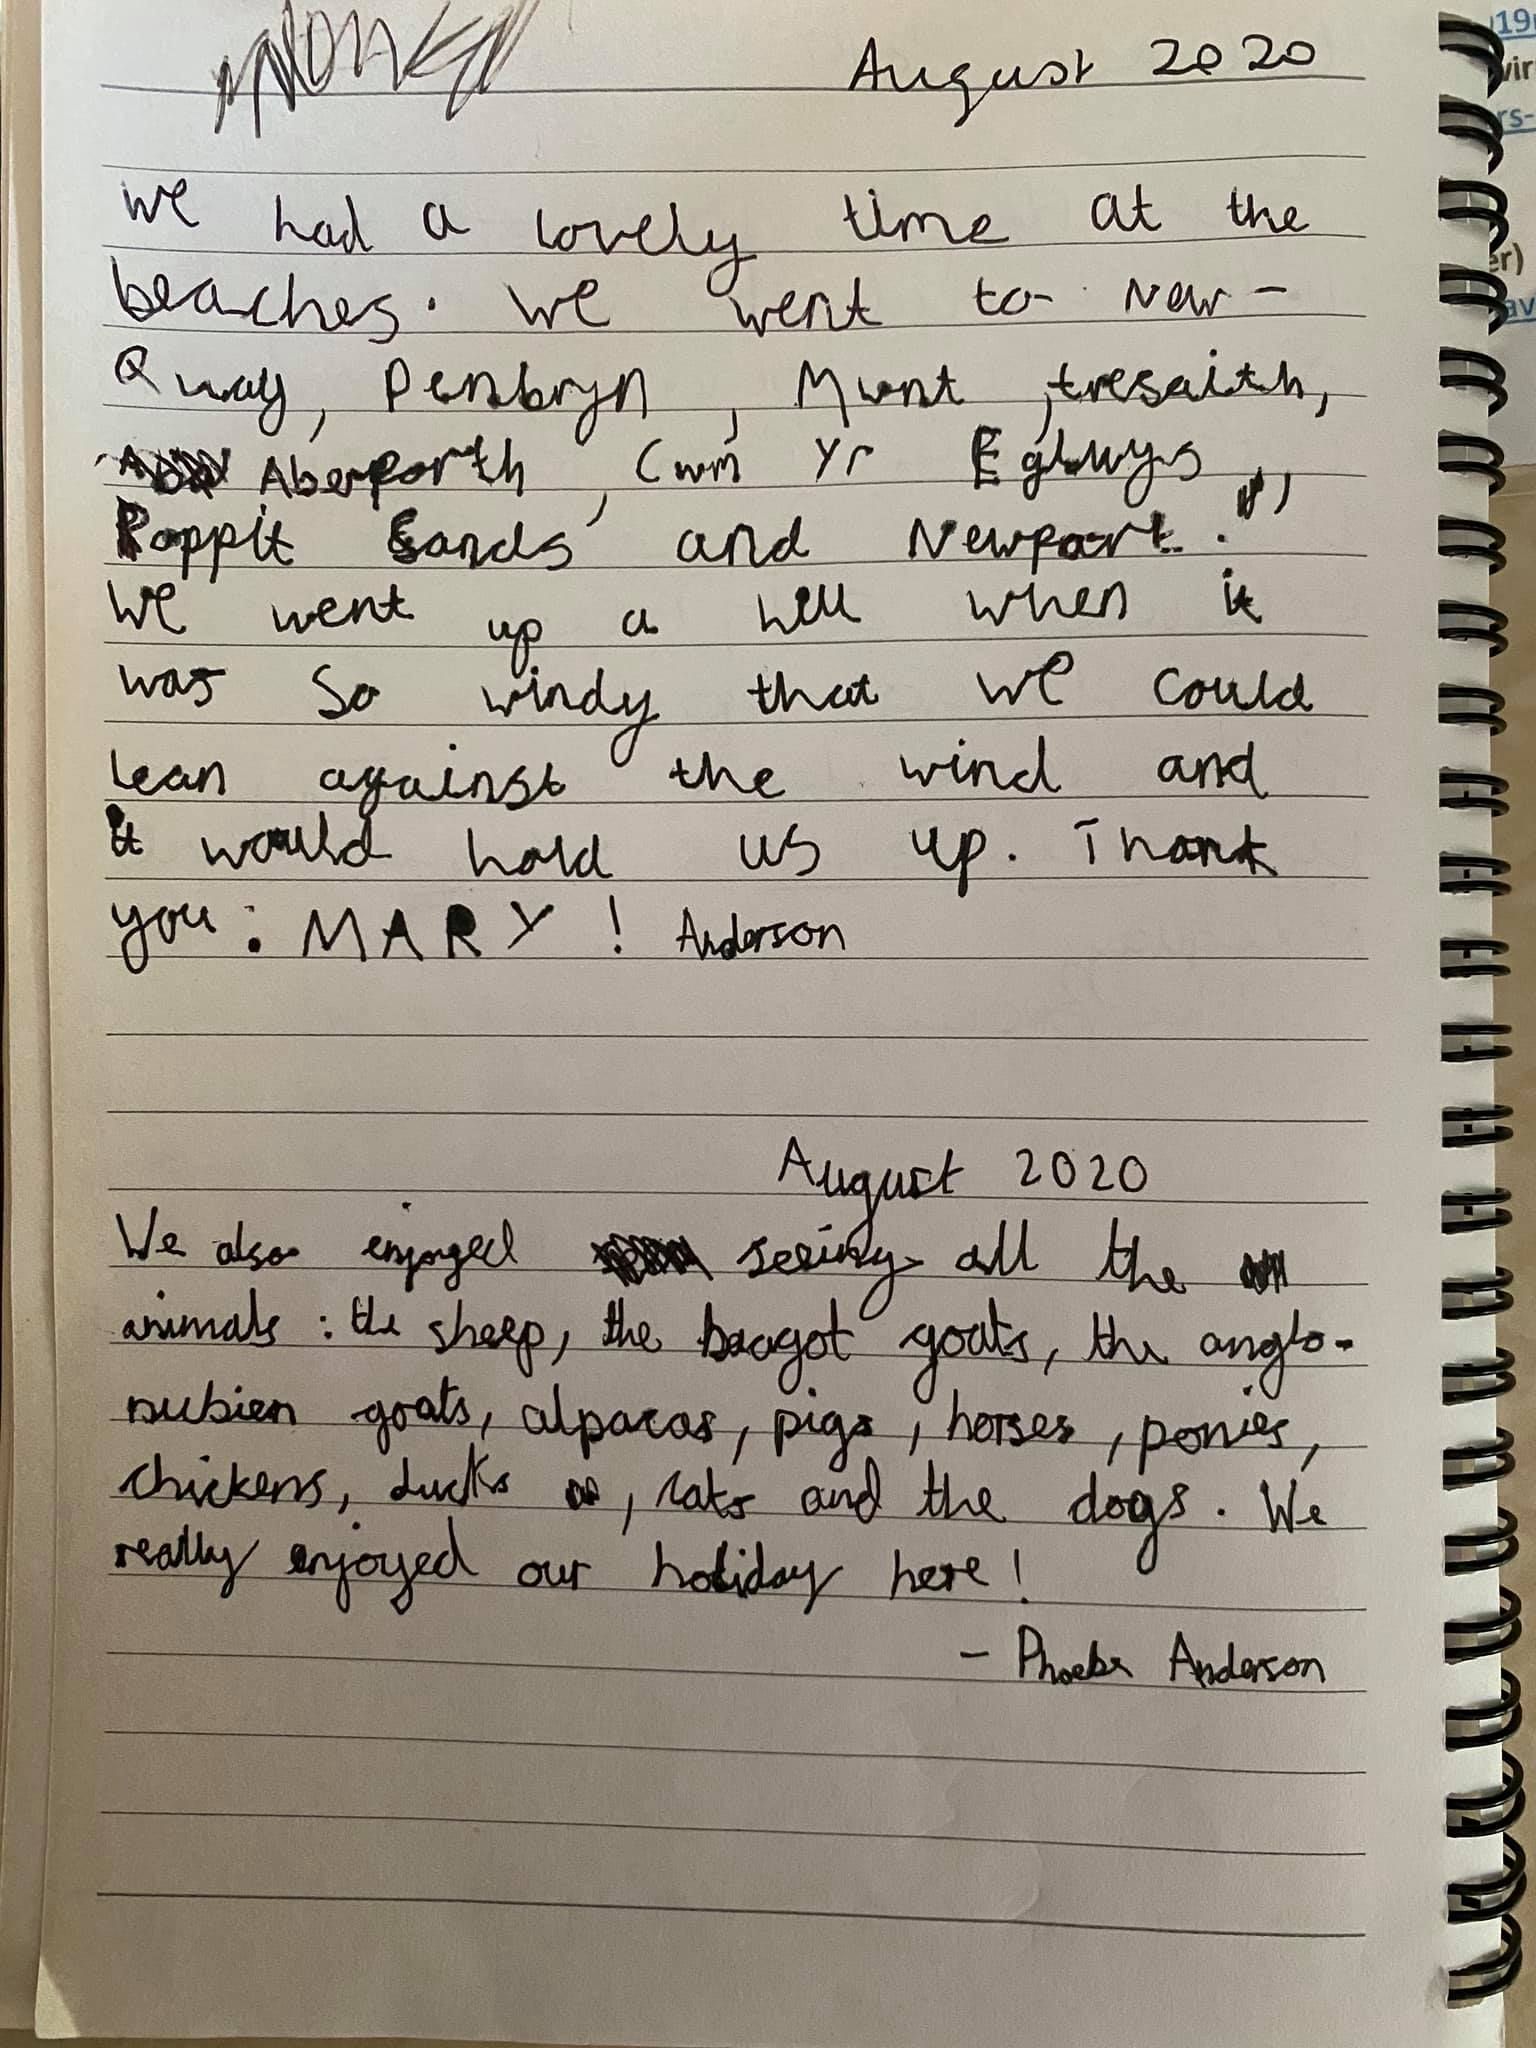 August 2020
We had a lovely time at the
beaches. We went to New-
Quay, Penbryn, Mwnt, tresaith,
Aberporth, Cwm Yr Eglwys,
Poppit Sands and Newport.
We went up a hill when it
was so windy that we could
lean against the wind and
it would hold us up. Thank
you: MARY! Anderson
August 2020
We also enjoyed seeing all the
animals: the sheep, the baagot goats, the anglo-
nubien goats, alpacas, pigs, horses, ponies,
chickens, ducks, cats and the dogs. We
really enjoyed our holiday here!
- Phoebe Anderson
19
vir
rs-
er)
av